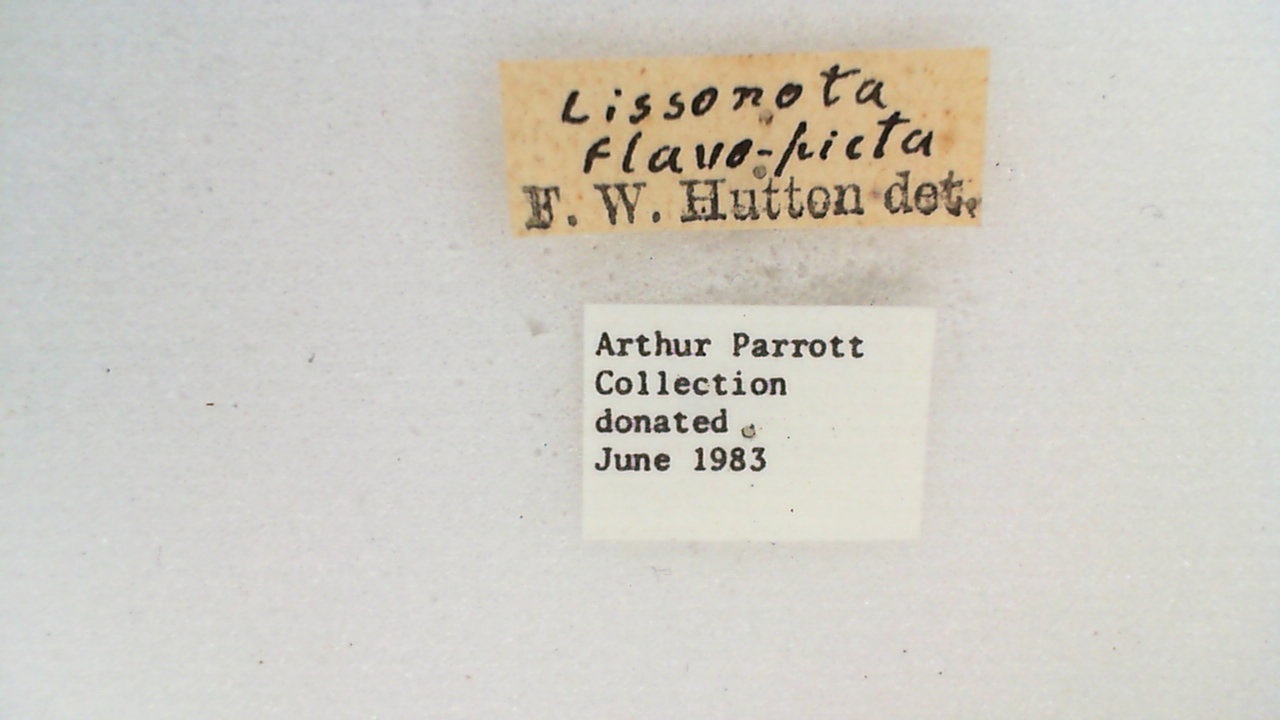 Lissonota
flavo-picta
F. W. Hutton det.
Arthur Parrott
Collection
donated
June 1983